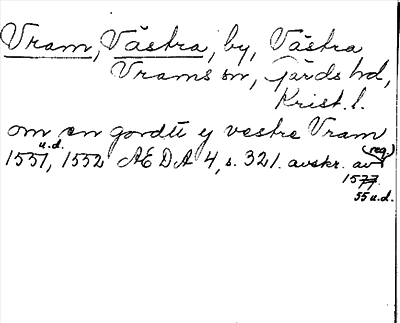 Vram, Västra, by, Västra
Vrams sn, Gärds hd,
Krist. l.
om en gordtt y vestre Vram
u.d. (reg.)
1551, 1552 AEDA 4, s. 321. avskr. av
1577.
55 u.d.